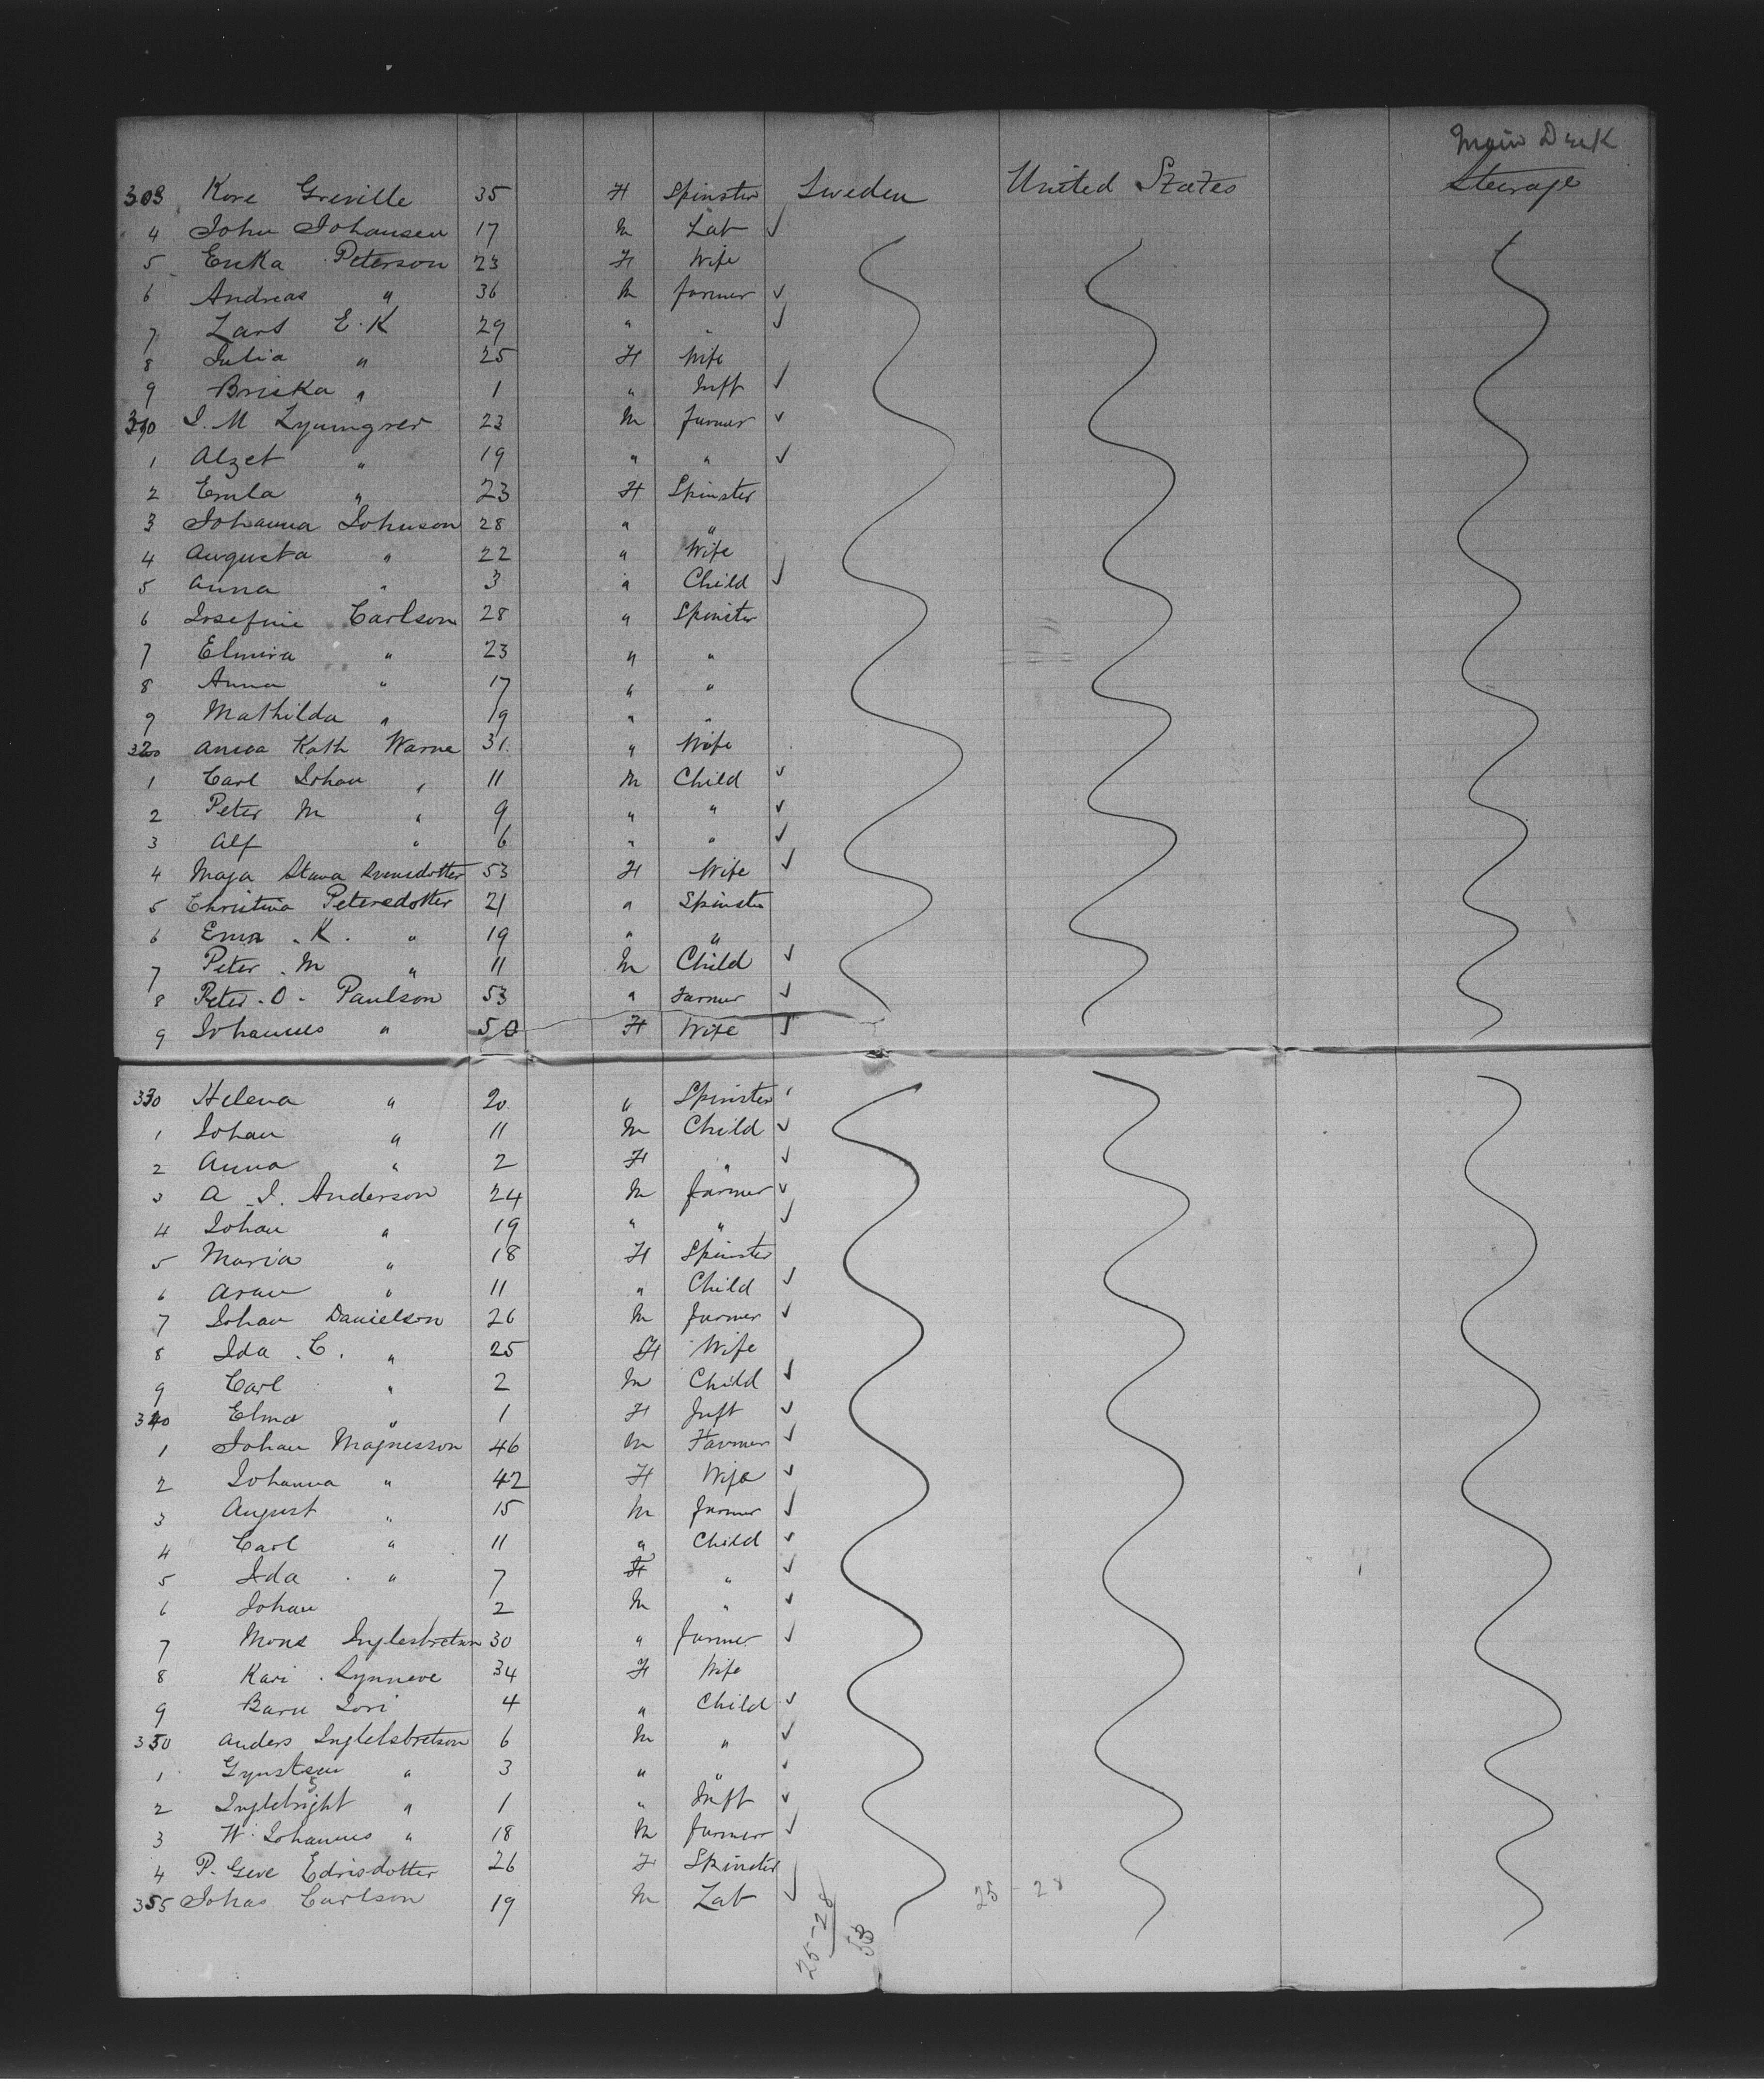 Main Deck
303 Kore Greville 35 F Spinster Sweden United States Steerage
4 John Johansen 17 M Lab ✓
5 Erika Peterson 23 F Wife
6 Andreas " 36 M farmer ✓
7 Lars E. K 29 " " ✓
8 Julia " 25 F Wife
9 Briska " 1 " Inft ✓
310 I. M 23 M farmer ✓
1 Alzet " 19 " " ✓
2 Emla " 23 F Spinster
3 Johanna Johnson 28 " "
4 Augusta " 22 " Wife
5 Anna " 3 " Child ✓
6 Josefine Carlson 28 " Spinster
7 Elmira " 23 " "
8 Anna " 17 " "
9 Mathilda " 19 " "
320 Anna Kath Warne 31 " Wife
1 Carl Johan " 11 M Child ✓
2 Peter M " 9 " " ✓
3 Alf " 6 " " ✓
4 Maja Stava Svensdotter 53 F Wife ✓
5 Christina Petersdotter 21 " Spinster
6 Emma . K . " 19 " "
7 Peter . M " 11 M Child ✓
8 Peter - O - Paulson 53 " Farmer ✓
9 Johannes " 50 F Wife ✓
330 Helena " 20 " Spinster ✓
1 Johan " 11 M Child ✓
2 Anna " 2 F " ✓
3 A . I. Anderson 24 M farmer ✓
4 Johan " 19 " " ✓
5 Maria " 18 F Spinster
6 Aran " 11 " Child ✓
7 Johan Danielson 26 M farmer ✓
8 Ida . C . " 25 F Wife
9 Carl " 2 M Child ✓
340 Elma " 1 F Inft ✓
1 Johan Magnesson 46 M Farmer ✓
2 Johanna " 42 F Wife ✓
3 August " 15 M farmer ✓
4 Carl " 11 " Child ✓
5 Ida " 7 F " ✓
6 Johan 2 M " ✓
7 Mons Inglesbretson 30 " farmer ✓
8 Kari . Synneve 34 F Wife
9 Barn Jori 4 " Child ✓
350 Anders Inglelsbretson 6 M " ✓
1 Gynsteen " 3 " " ✓
2 Inglebright " 1 " Inft ✓
3 W. Johannes " 18 M farmer ✓
4 P. Geve Edrisdotter 26 F Spinster
355 Johas Carlson 19 M Lab ✓
25 - 28
25 - 28
53